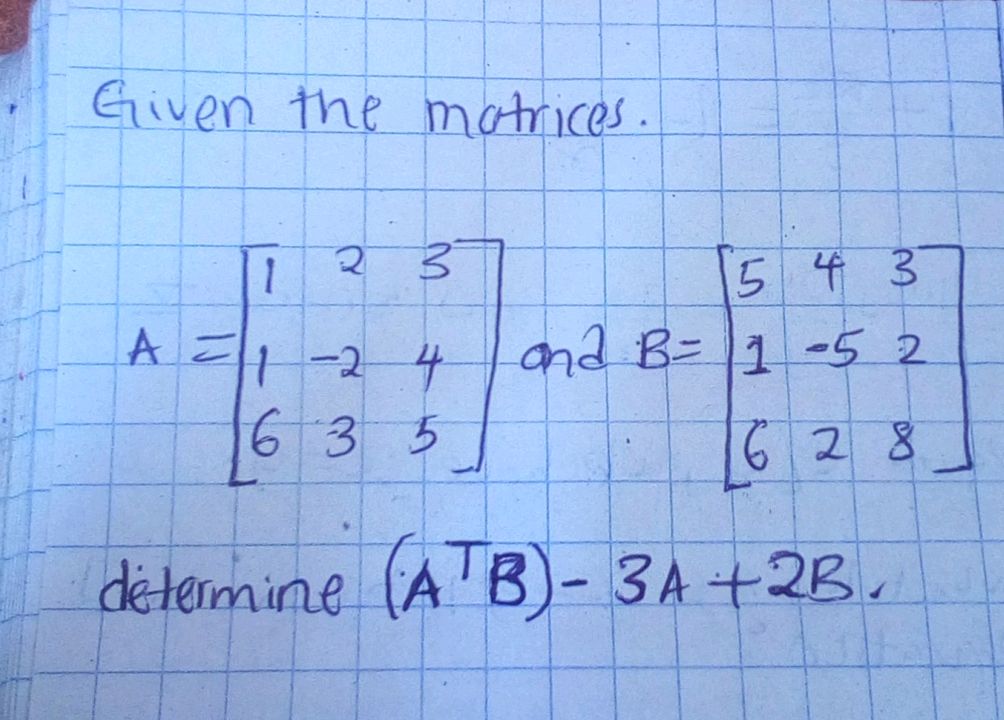 Given the matrices.
A = [1 2 3
1 -2 4
6 3 5] and B = [5 4 3
1 -5 2
6 2 8]
determine (AᵀB) - 3A + 2B.